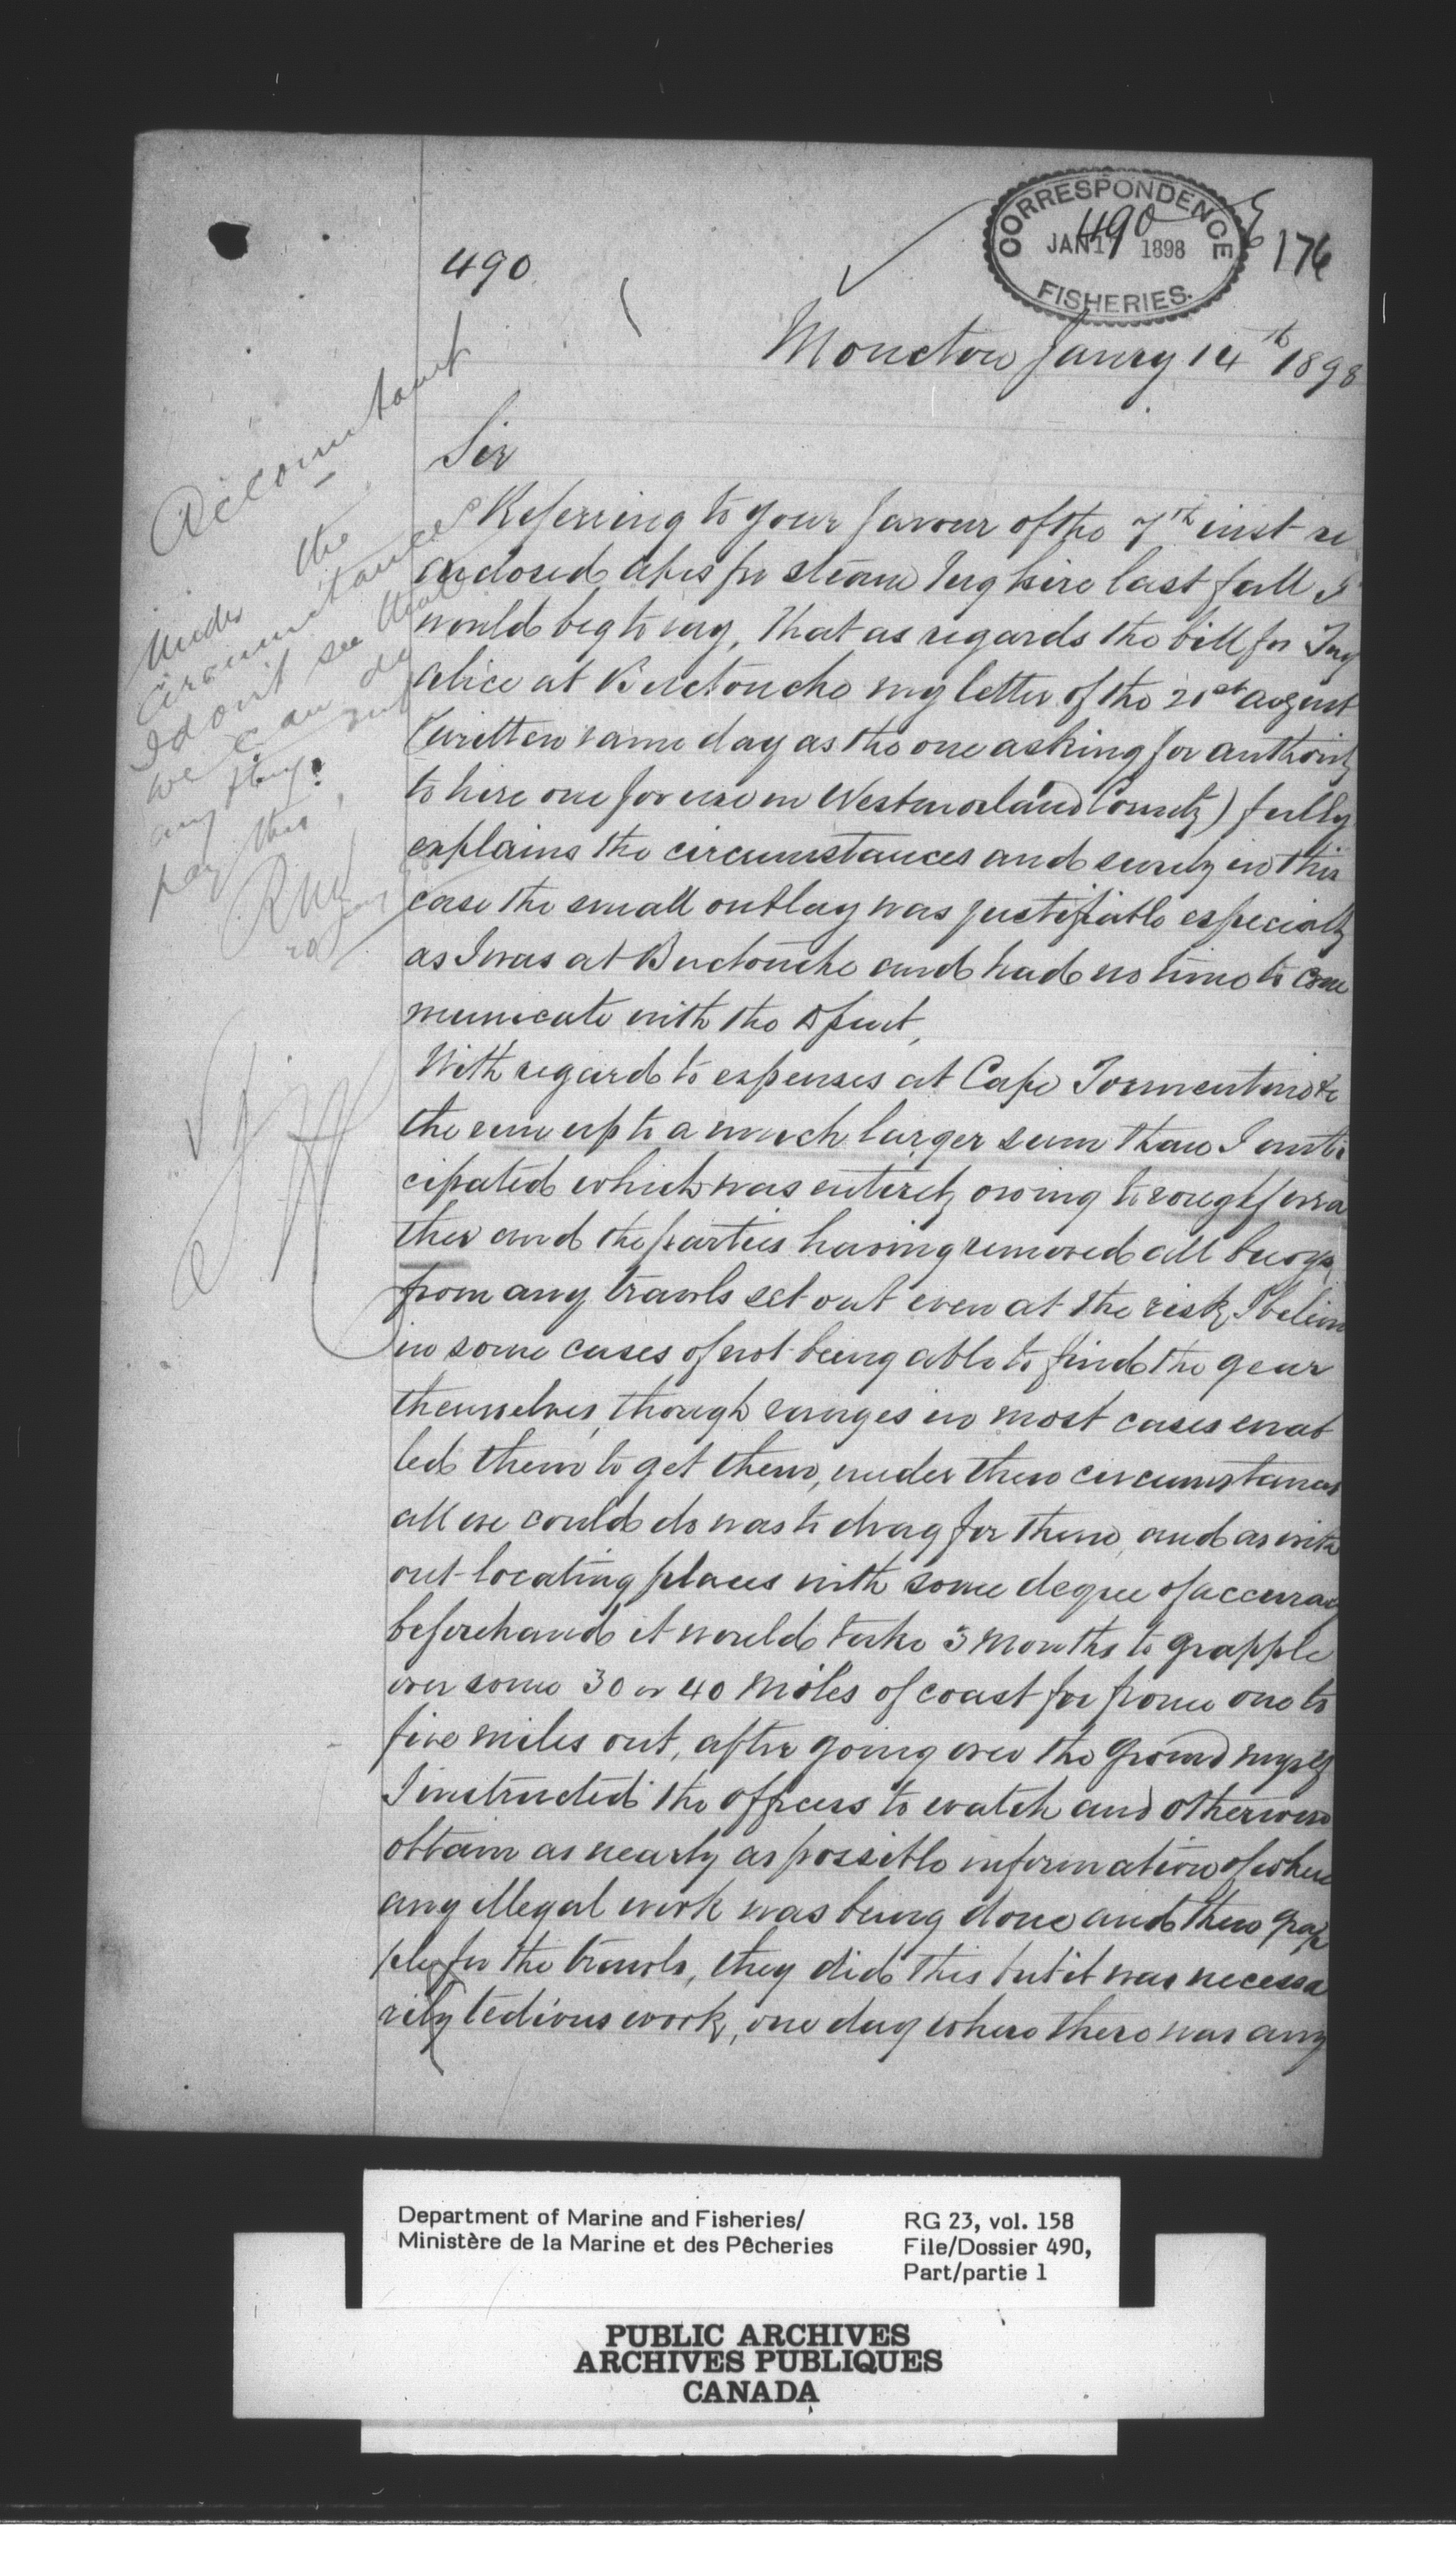 CORRESPONDENCE
490
JAN 17 1898
FISHERIES.
176
490
Moncton Janry 14th 1898
Sir
Referring to your favour of the 7th inst re
enclosed a/cs for steam Tug hire last fall I
would beg to say, that as regards the bill for Tug
Alice at Buctouche my letter of the 21st august
(written same day as the one asking for authority
to hire one for use in Westmorland County) fully
explains the circumstances and surely in this
case the small outlay was justifiable especially
as I was at Buctouche and had no time to com
municate with the Dpmt,
With regard to expenses at Cape Tormentine &c
the sum up to a much larger sum than I anti
cipated which was entirely owing to rough wea
ther and the parties having removed all buoys
from any trawls set out even at the risk I believe
in some cases of not being able to find the gear
themselves, though ranges in most cases enab
led them to get them, under these circumstances
all we could do was to drag for them, and as with
out locating places with some degree of accuracy
beforehand it would take 3 months to grapple
over some 30 or 40 Miles of coast for from one to
five miles out, after going over the ground myself
I instructed the officers to watch and otherwise
obtain as nearly as possible information of where
any illegal work was being done and then grap
ple for the trawls, they did this but it was necessa
rily tedious work, one day where there was any
Accountant
Under the
Circumstances
I dont see that
we can do
any thing but
pay this
Department of Marine and Fisheries/
Ministère de la Marine et des Pêcheries
RG 23, vol. 158
File/Dossier 490,
Part/partie 1
PUBLIC ARCHIVES
ARCHIVES PUBLIQUES
CANADA